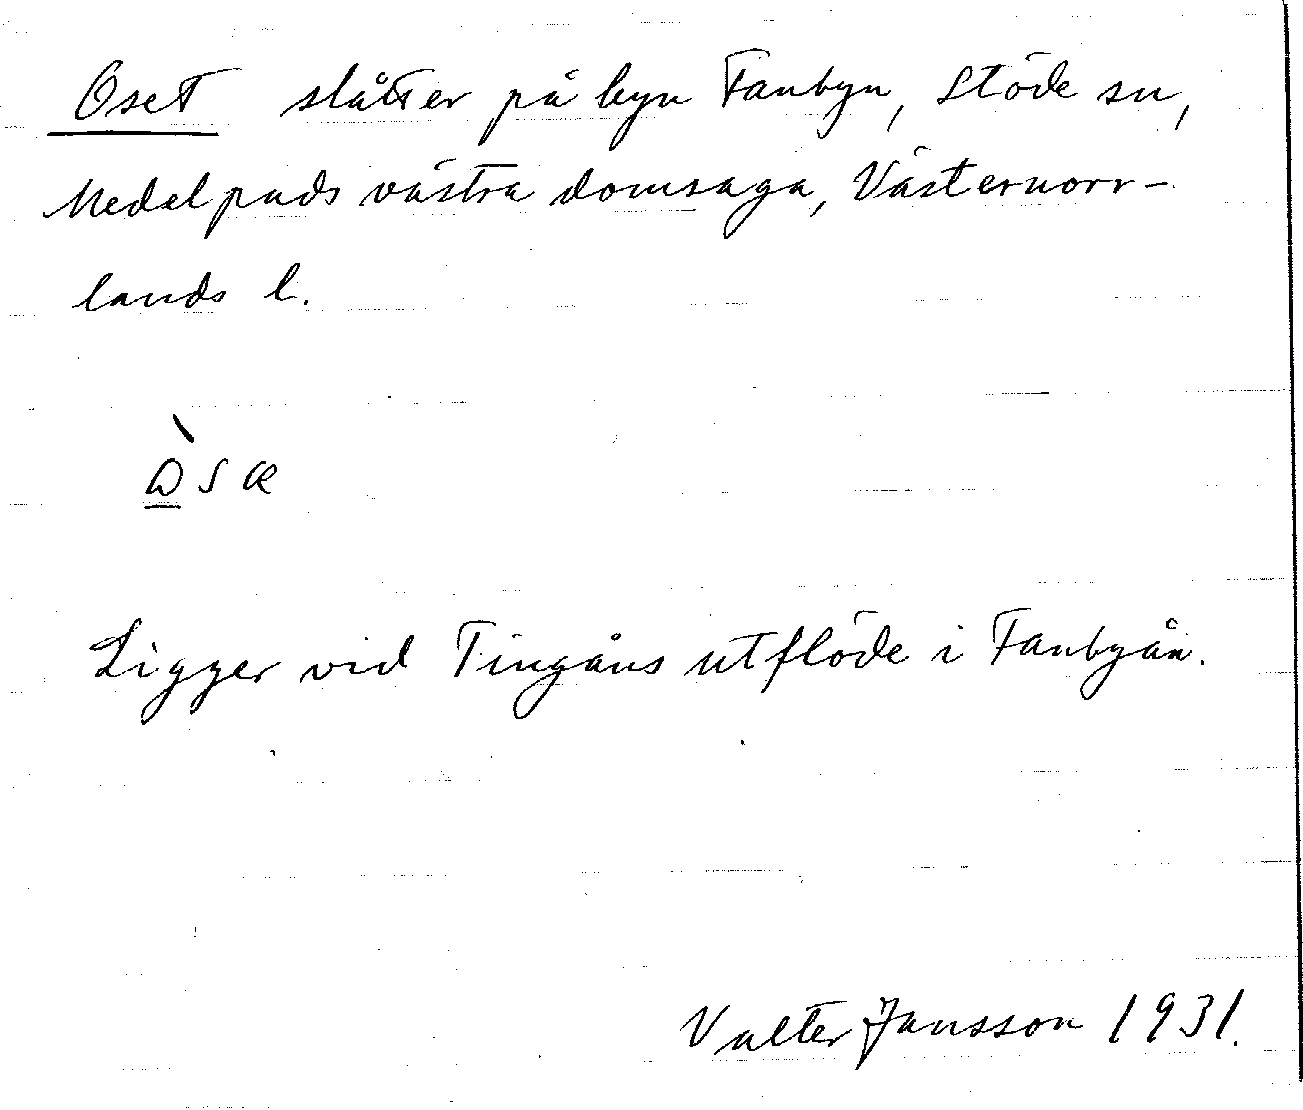 Oset slåtter på byn Fanbyn, Stöde sn,
Medelpads västra domsaga, Västernorr-
lands l.
Ligger vid Tingåns utflöde i Fanbyån.
Valter Jansson 1931.